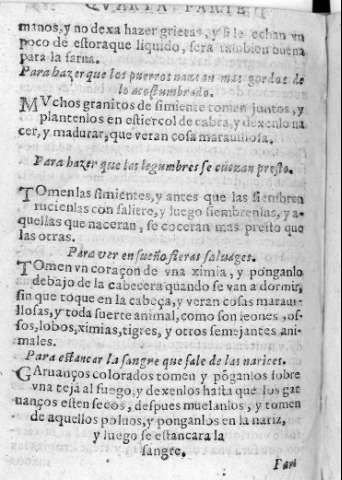 QVARTA PARTE
manos, y no dexa hazer grietas, y si le echan vn
poco de estoraque liquido, será tambien buena
para la sarna.
Para hazer que los puerros nazcan mas gordos de
lo acostumbrado.
MVchos granitos de simiente tomen juntos, y
plantenlos en estiercol de cabra, y dexenlo na
cer, y madurar, que veran cosa marauillosa.
Para hazer que las legumbres se cuezan presto.
TOmen las simientes, y antes que las siembren
rucienlas con salitre, y luego siembrenlas, y a-
quellas que naceran, se coceran mas presto que
las otras.
Para ver en sueño fieras saluages.
TOmen vn coraçon de vna ximia, y ponganlo
debajo de la cabecera quando se van a dormir,
sin que toque en la cabeça, y veran cosas maraui-
llosas, y toda suerte animal, como son leones, os-
sos, lobos, ximias, tigres, y otros semejantes ani-
males.
Para estancar la sangre que sale de las narices.
GAruanços colorados tomen y põganlos sobre
vna teja al fuego, y dexenlos hasta que los gar
uanços esten secos, despues muelanlos, y tomen
de aquellos poluos, y ponganlos en la nariz,
y luego se estancara la
sangre.
Para